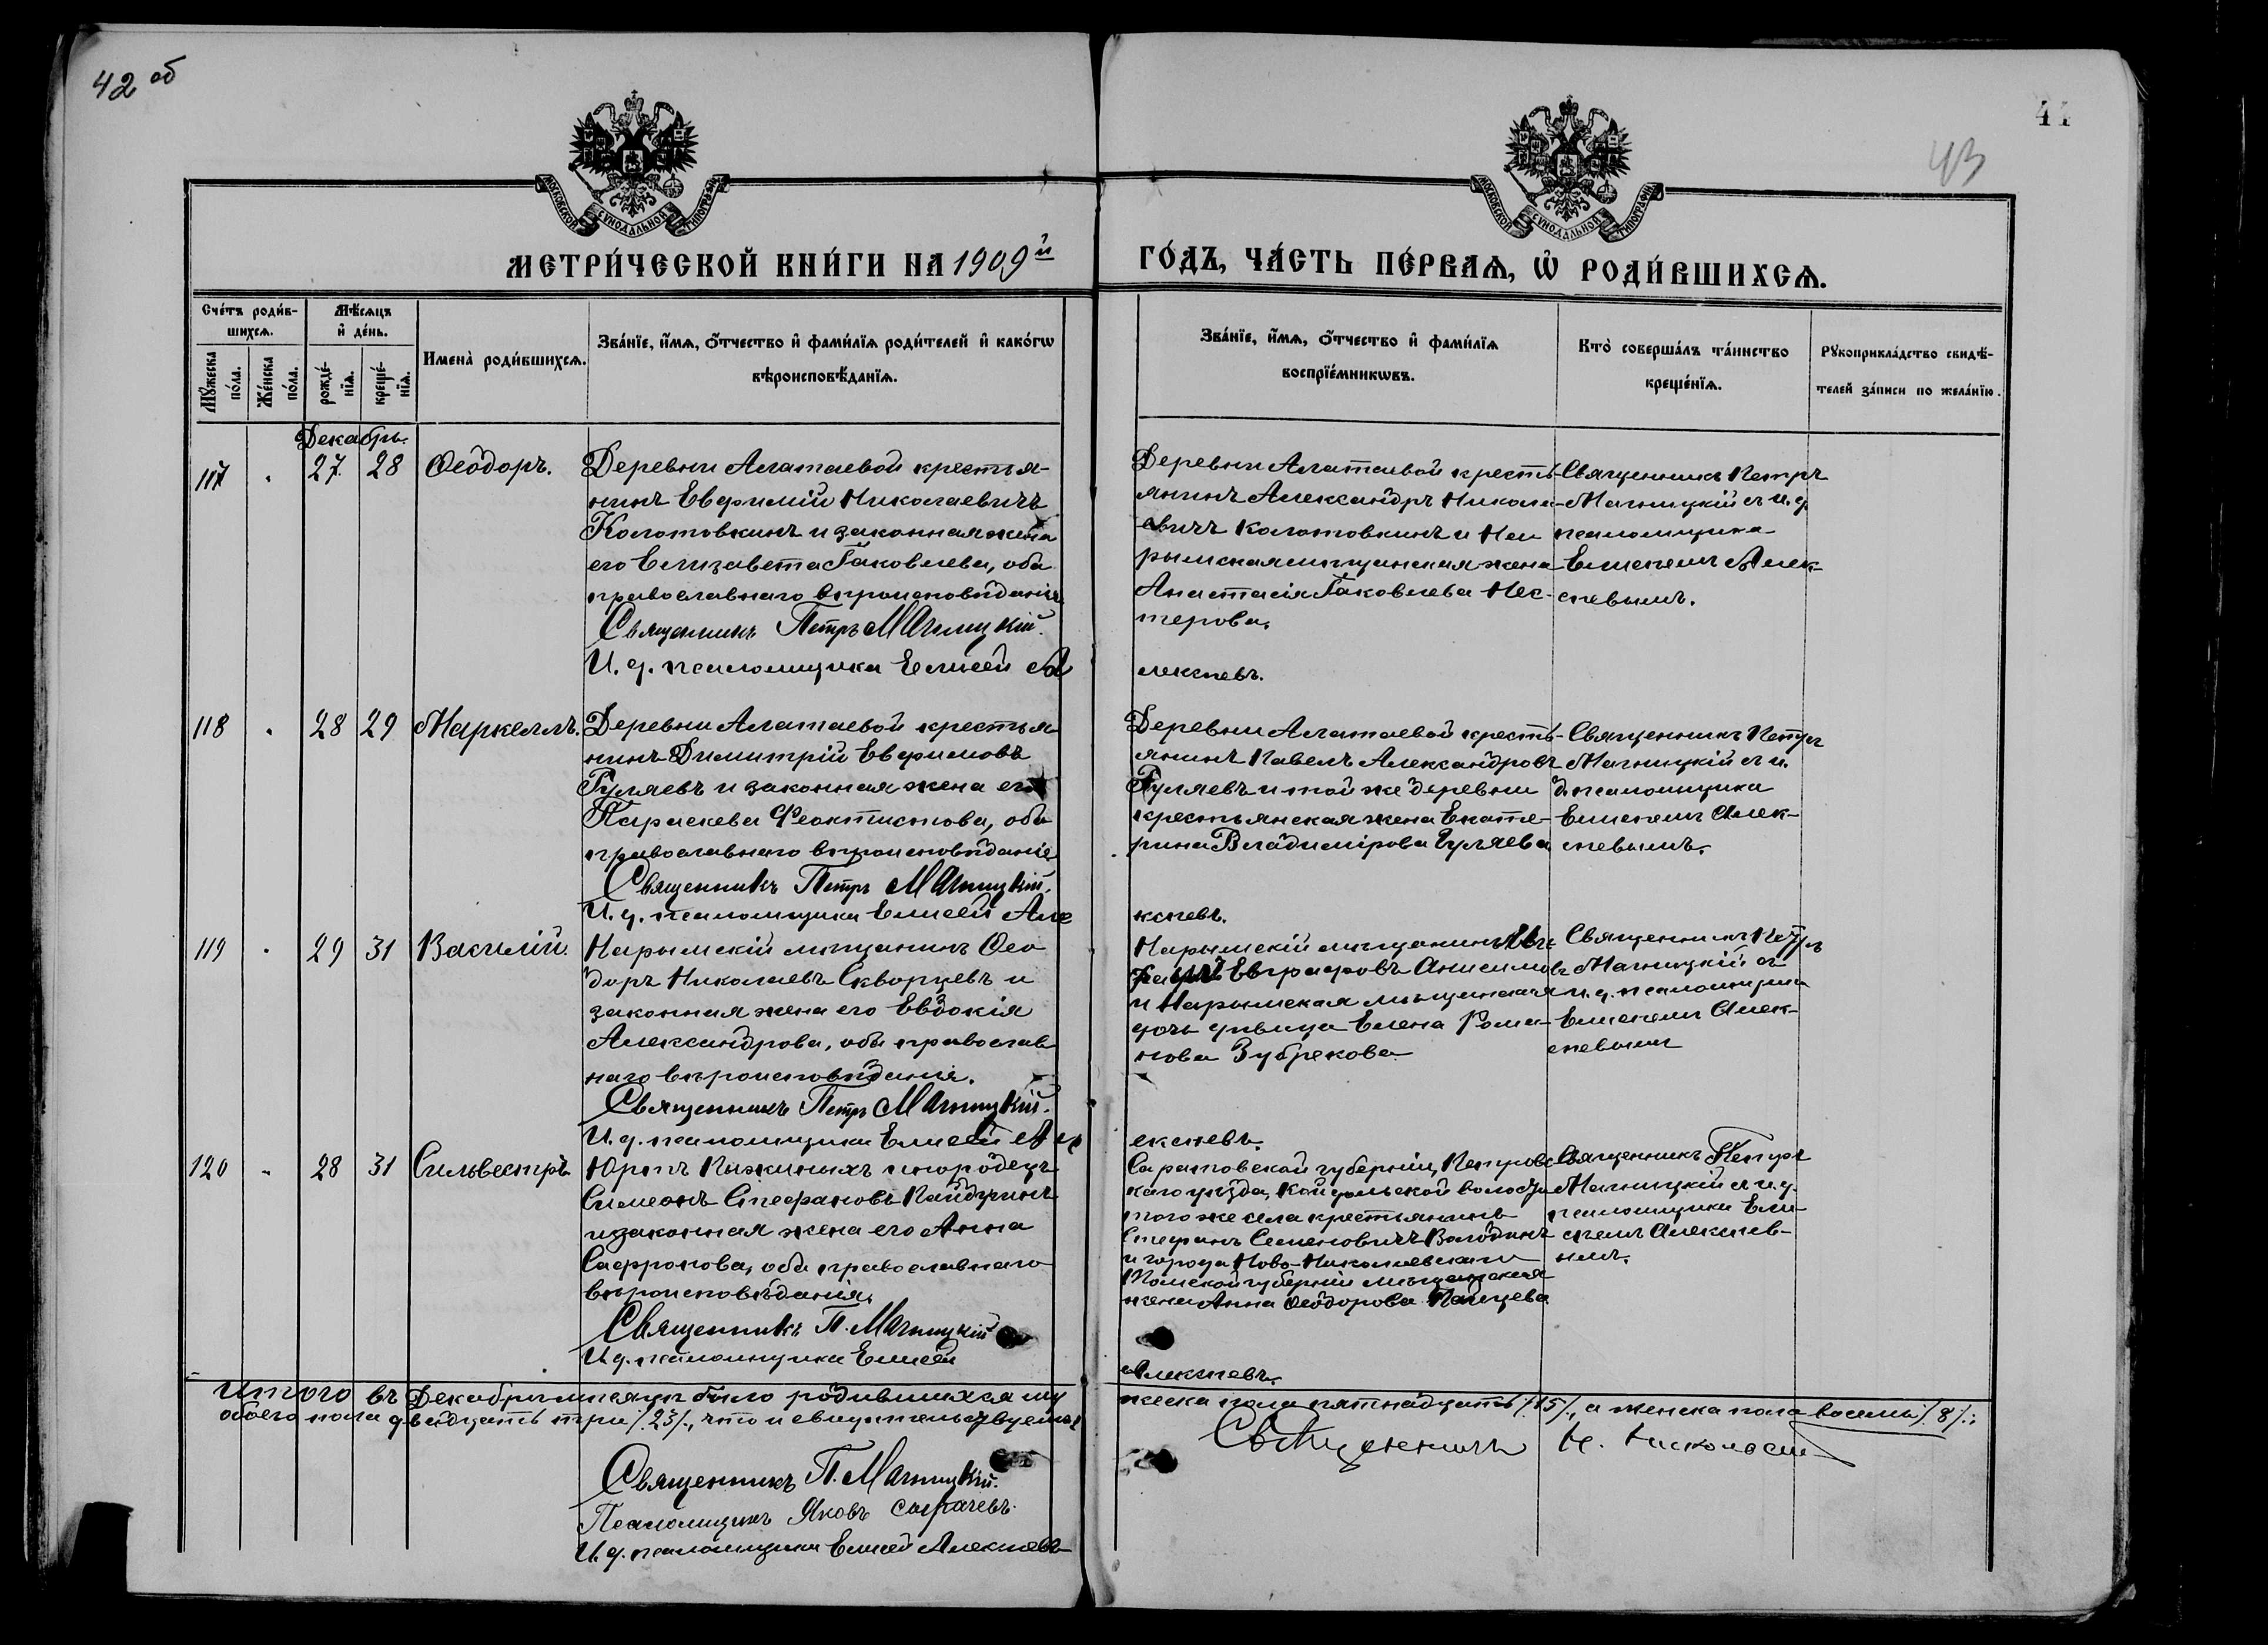 42 об
44
43
МОСКОВСКОЙ СѴНОДАЛЬНОЙ ТИПОГРАФІИ
МОСКОВСКОЙ СѴНОДАЛЬНОЙ ТИПОГРАФІИ
МЕТРИ́ЧЕСКОЙ КНИ́ГИ НА 1909й
ГО́ДЪ, ЧА́СТЬ ПЕ́РВАѦ, Ѡ҆ РОДИ́ВШИХСѦ.
Сче́тъ роди́в-
шихсѧ.
Мꙋ́жеска по́ла.
Же́нска по́ла.
Мѣ́сѧцъ
и҆ де́нь.
рожде́-
нїѧ.
креще́-
нїѧ.
Имена̀ роди́вшихсѧ.
Зва́нїе, и҆́мѧ, ѻ҆́тчество и҆ фами́лїѧ роди́телей и҆ како́гѡ
вѣроисповѣ́данїѧ.
Зва́нїе, и҆́мѧ, ѻ҆́тчество и҆ фами́лїѧ
воспрїе́мникѡвъ.
Кто̀ соверша́лъ та́инство
креще́нїѧ.
Рꙋкоприкла́дство свидѣ́-
телей за́писи по жела́нїю.
Декабрь.
117 " 27 28 Ѳеодоръ.
Деревни Алатаевой крестья-
нинъ Евфимій Николаевичъ
Колотовкинъ и законная жена
его Елизавета Іаковлева, оба
православнаго вѣроисповѣданія
Священникъ Петръ Магницкій.
И. д. псаломщика Елисей А
Деревни Алатаевой кресть-
янинъ Александръ Никола-
евичъ Колотовкинъ и На
рымская мѣщанская жена
Анастасія Іаковлева Нес-
терова.
лексѣевъ.
Священникъ Петръ
Магницкій съ и. д.
псаломщика
Елисеемъ Алек-
сѣевымъ.
118 " 28 29 Маркеллъ.
Деревни Алатаевой крестья
нинъ Димитрій Евфимовъ
Гуляевъ и законная жена его
Параскева Феоктистова, оба
православнаго вѣроисповѣданіе
Священникъ Петръ Магницкій.
И. д. псаломщика Елисей Але
Деревни Алатаевой кресть-
янинъ Павелъ Александровъ
Гуляевъ и той же деревни
крестьянская жена Екате-
рина Владимірова Гуляева
ксѣевъ.
Священникъ Петръ
Магницкій съ и.
д. псаломщика
Елисеемъ Алек-
сѣевымъ.
119 " 29 31 Василій.
Нарымскій мѣщанинъ Ѳео
доръ Николаевъ Скворцевъ и
законная жена его Евдокія
Александрова, оба православ
наго вѣроисповѣданія.
Священникъ Петръ Магницкій.
И. д. псаломщика Елисей Ал
Нарымскій мѣщанинъ
Евграфовъ Анисимовъ
и Нарымская мѣщанская
дочь дѣвица Елена Рома-
нова Зубрекова
ексѣевъ.
Священникъ Петръ
Магницкій съ
и. д. псаломщика
Елисеемъ Алек-
сѣевымъ
120 " 28 31 Сильвестръ
Юртъ Пыжиныхъ инородецъ
Симеонъ Стефановъ Кайдучинъ
и законная жена его Анна
Сафронова, оба православнаго
вѣроисповѣданія.
Священникъ П. Магницкій
И. д. псаломщика Елисей
Саратовской губерніи, Петровс
каго уѣзда, волости
того же села крестьянинъ
Стефанъ Семеновичъ Володинъ
и города Ново-Николаевскаго
Томской губерніи мѣщанская
жена Анна Ѳеодорова
Алексѣевъ.
Священникъ Петръ
Магницкій съ и. д.
псаломщика Ели-
сеемъ Алексѣев-
ымъ.
Итого въ Декабрѣ мѣсяцѣ было родившихся му
жеска пола пятнадцать /15/, а женска пола восемь /8/;
обоего пола двадцать три /23/, что и свидѣтельствуемъ
Священникъ П. Магницкій.
Псаломщикъ Яковъ
И. д. псаломщика Елисей Алексѣевъ
Священникъ Н.